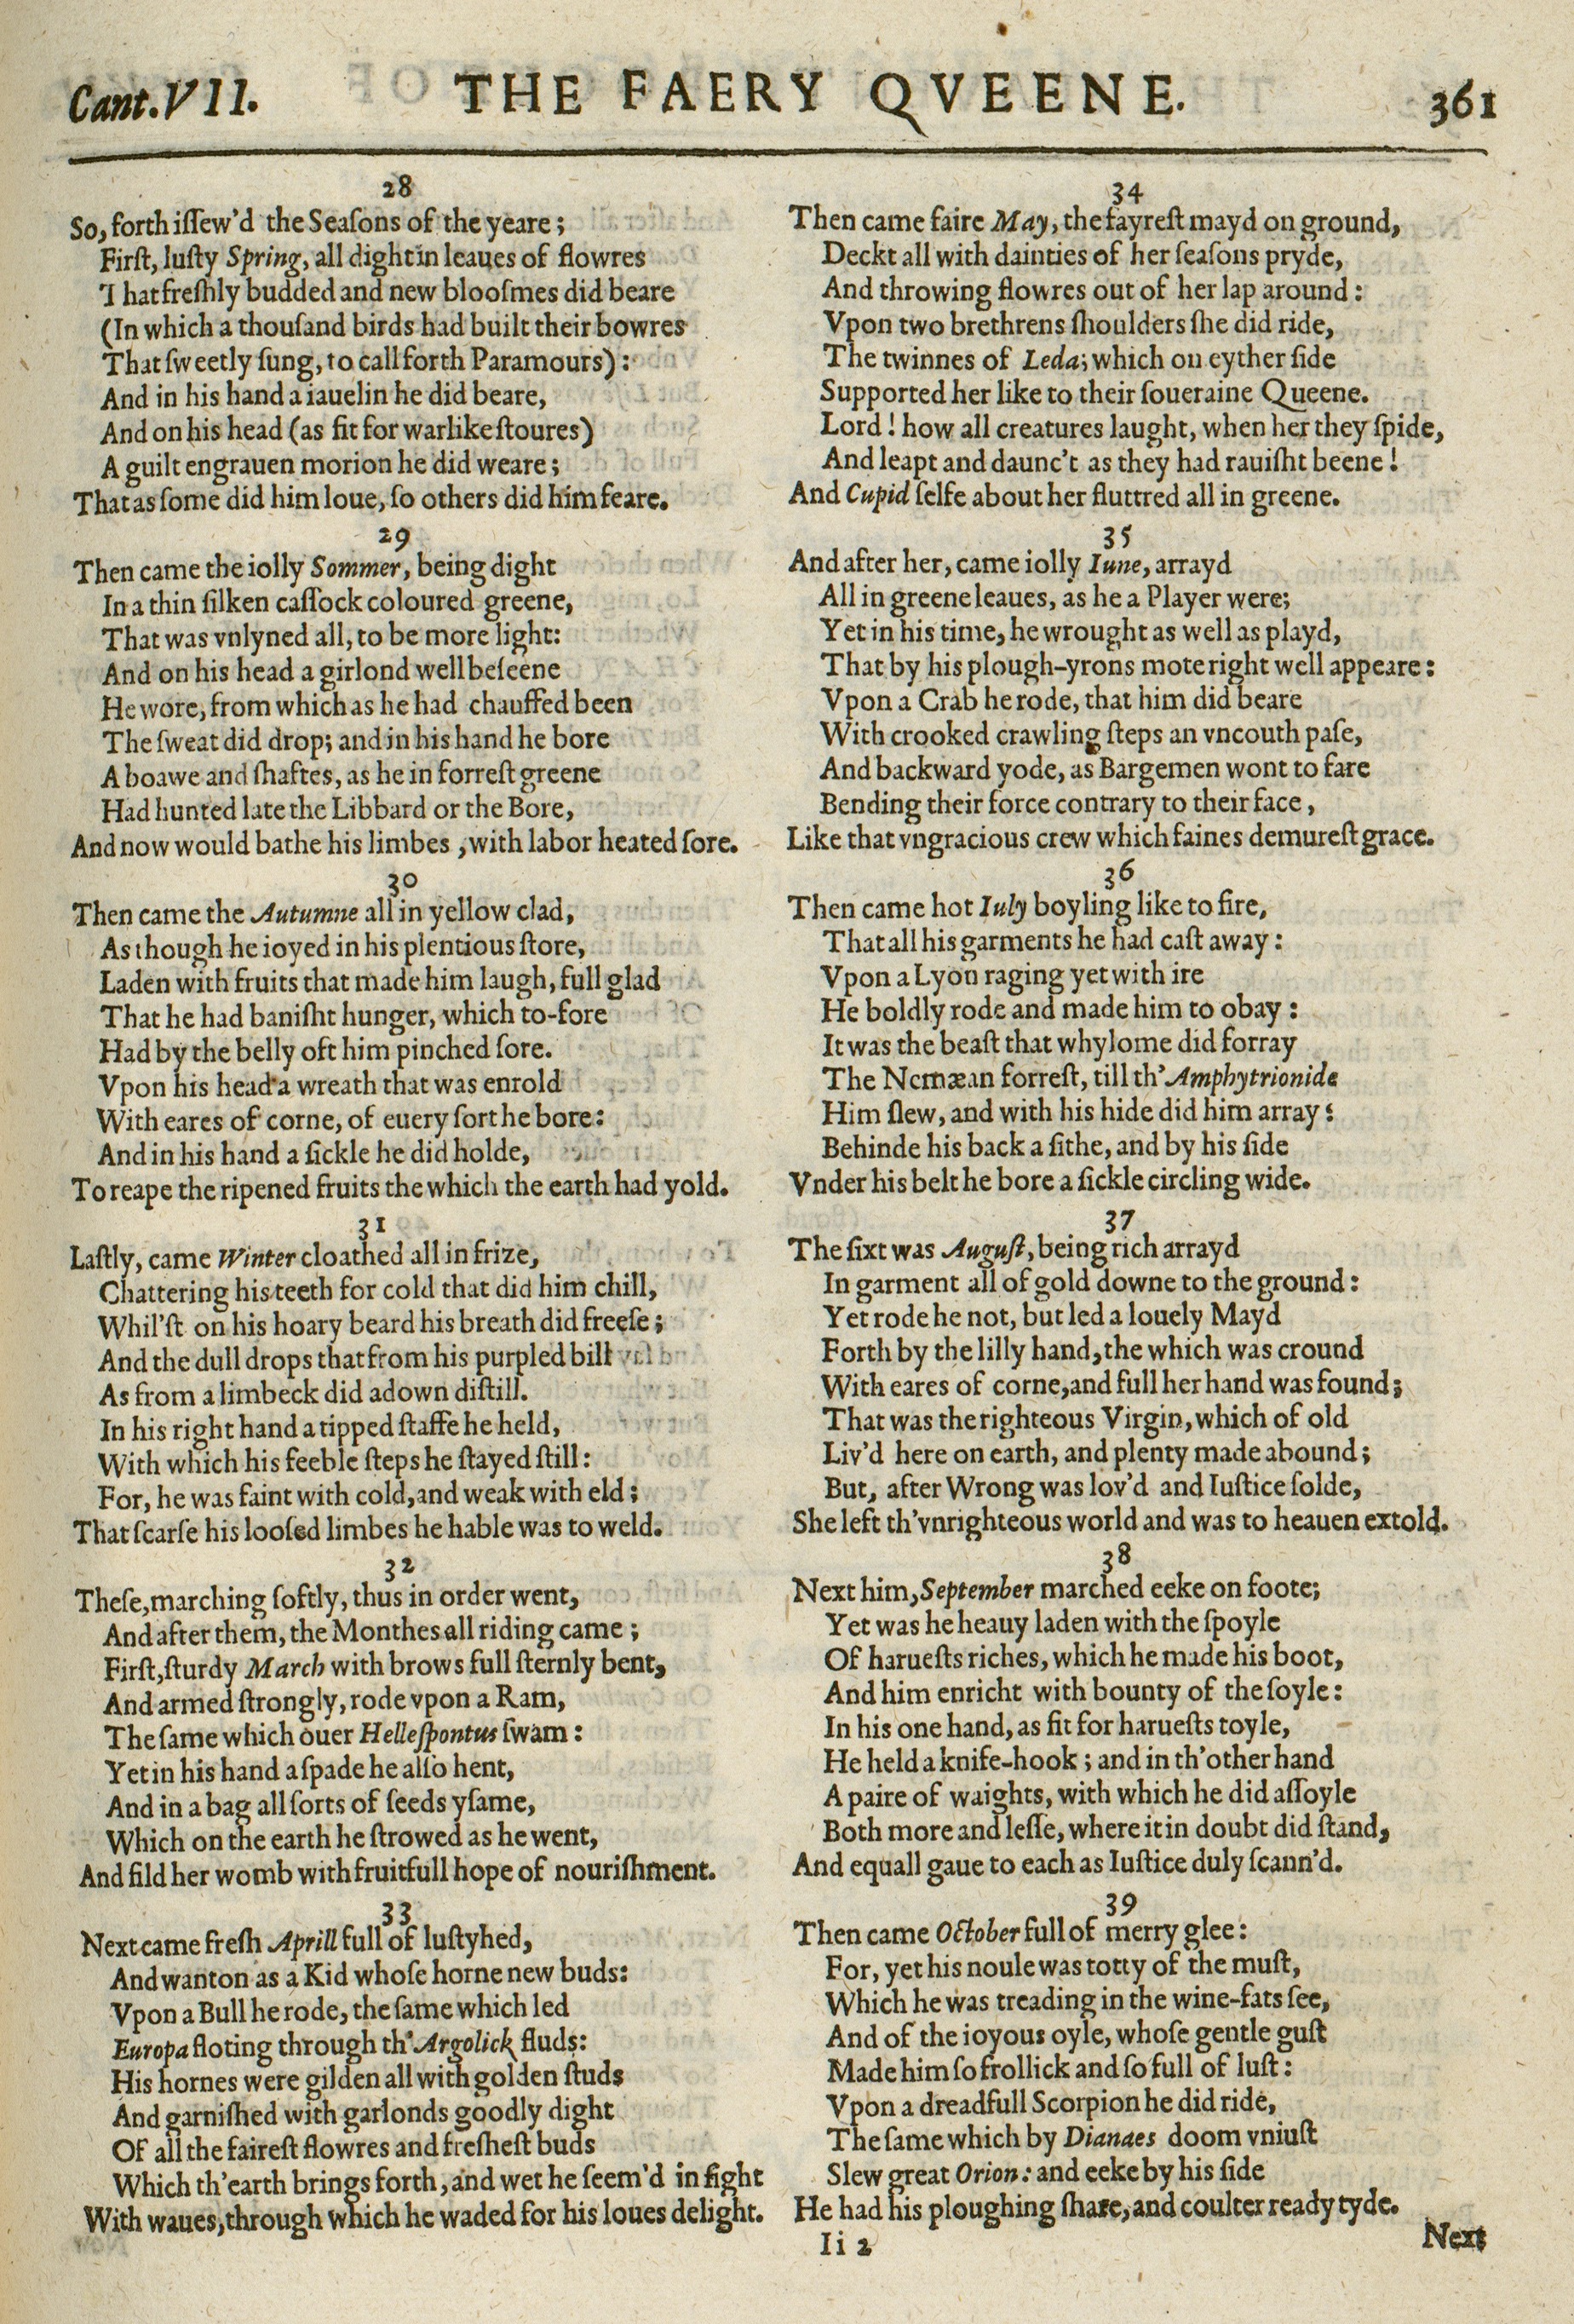 Cant. VII. THE FAERY QVEENE. 361
28
So, forth iſſew'd the Seaſons of the yeare;
Firſt, luſty Spring, all dight in leaues of flowres
That freſhly budded and new blooſmes did beare
(In which a thouſand birds had built their bowres
That ſweetly ſung, to call forth Paramours):
And in his hand a iauelin he did beare,
And on his head (as fit for warlike ſtoures)
A guilt engrauen morion he did weare;
That as ſome did him loue, ſo others did him feare.
29
Then came the iolly Sommer, being dight
In a thin ſilken caſſock coloured greene,
That was vnlyned all, to be more light:
And on his head a girlond well beſeene
He wore, from which as he had chauffed been
The ſweat did drop; and in his hand he bore
A boawe and ſhaftes, as he in forreſt greene
Had hunted late the Libbard or the Bore,
And now would bathe his limbes, with labor heated ſore.
30
Then came the Autumne all in yellow clad,
As though he ioyed in his plentious ſtore,
Laden with fruits that made him laugh, full glad
That he had baniſht hunger, which to-fore
Had by the belly oft him pinched ſore.
Vpon his head a wreath that was enrold
With eares of corne, of euery ſort he bore:
And in his hand a ſickle he did holde,
To reape the ripened fruits the which the earth had yold.
31
Laſtly, came Winter cloathed all in frize,
Chattering his teeth for cold that did him chill,
Whil'ſt on his hoary beard his breath did freeſe;
And the dull drops that from his purpled bill
As from a limbeck did adown diſtill.
In his right hand a tipped ſtaffe he held,
With which his feeble ſteps he ſtayed ſtill:
For, he was faint with cold, and weak with eld;
That ſcarſe his looſed limbes he hable was to weld.
32
Theſe, marching ſoftly, thus in order went,
And after them, the Monthes all riding came;
Firſt, ſturdy March with brows full ſternly bent,
And armed ſtrongly, rode vpon a Ram,
The ſame which ouer Helleſpontus ſwam:
Yet in his hand a ſpade he alſo hent,
And in a bag all ſorts of ſeeds yſame,
Which on the earth he ſtrowed as he went,
And fild her womb with fruitfull hope of nouriſhment.
33
Next came freſh Aprill full of luſtyhed,
And wanton as a Kid whoſe horne new buds:
Vpon a Bull he rode, the ſame which led
Europa floting through th' Argolick fluds:
His hornes were gilden all with golden ſtuds
And garniſhed with garlonds goodly dight
Of all the faireſt flowres and freſheſt buds
Which th'earth brings forth, and wet he ſeem'd in ſight
With waues, through which he waded for his loues delight.
34
Then came faire May, the fayreſt mayd on ground,
Deckt all with dainties of her ſeaſons pryde,
And throwing flowres out of her lap around:
Vpon two brethrens ſhoulders ſhe did ride,
The twinnes of Leda; which on eyther ſide
Supported her like to their ſoueraine Queene.
Lord! how all creatures laught, when her they ſpide,
And leapt and daunc't as they had rauiſht beene!
And Cupid ſelfe about her fluttred all in greene.
35
And after her, came iolly Iune, arrayd
All in greene leaues, as he a Player were;
Yet in his time, he wrought as well as playd,
That by his plough-yrons mote right well appeare:
Vpon a Crab he rode, that him did beare
With crooked crawling ſteps an vncouth paſe,
And backward yode, as Bargemen wont to fare
Bending their force contrary to their face,
Like that vngracious crew which faines demureſt grace.
36
Then came hot Iuly boyling like to fire,
That all his garments he had caſt away:
Vpon a Lyon raging yet with ire
He boldly rode and made him to obay:
It was the beaſt that whylome did forray
The Nemæan forreſt, till th' Amphytrionide
Him ſlew, and with his hide did him array:
Behinde his back a ſithe, and by his ſide
Vnder his belt he bore a ſickle circling wide.
37
The ſixt was Auguſt, being rich arrayd
In garment all of gold downe to the ground:
Yet rode he not, but led a louely Mayd
Forth by the lilly hand, the which was cround
With eares of corne, and full her hand was found;
That was the righteous Virgin, which of old
Liv'd here on earth, and plenty made abound;
But, after Wrong was lov'd and Iuſtice ſolde,
She left th'vnrighteous world and was to heauen extold.
38
Next him, September marched eeke on foote;
Yet was he heauy laden with the ſpoyle
Of harueſts riches, which he made his boot,
And him enricht with bounty of the ſoyle:
In his one hand, as fit for harueſts toyle,
He held a knife-hook; and in th'other hand
A paire of waights, with which he did aſſoyle
Both more and leſſe, where it in doubt did ſtand,
And equall gaue to each as Iuſtice duly ſcann'd.
39
Then came October full of merry glee:
For, yet his noule was totty of the muſt,
Which he was treading in the wine-fats ſee,
And of the ioyous oyle, whoſe gentle guſt
Made him ſo frollick and ſo full of luſt:
Vpon a dreadfull Scorpion he did ride,
The ſame which by Dianaes doom vniuſt
Slew great Orion: and eeke by his ſide
He had his ploughing ſhare, and coulter ready tyde.
Ii 2 Next